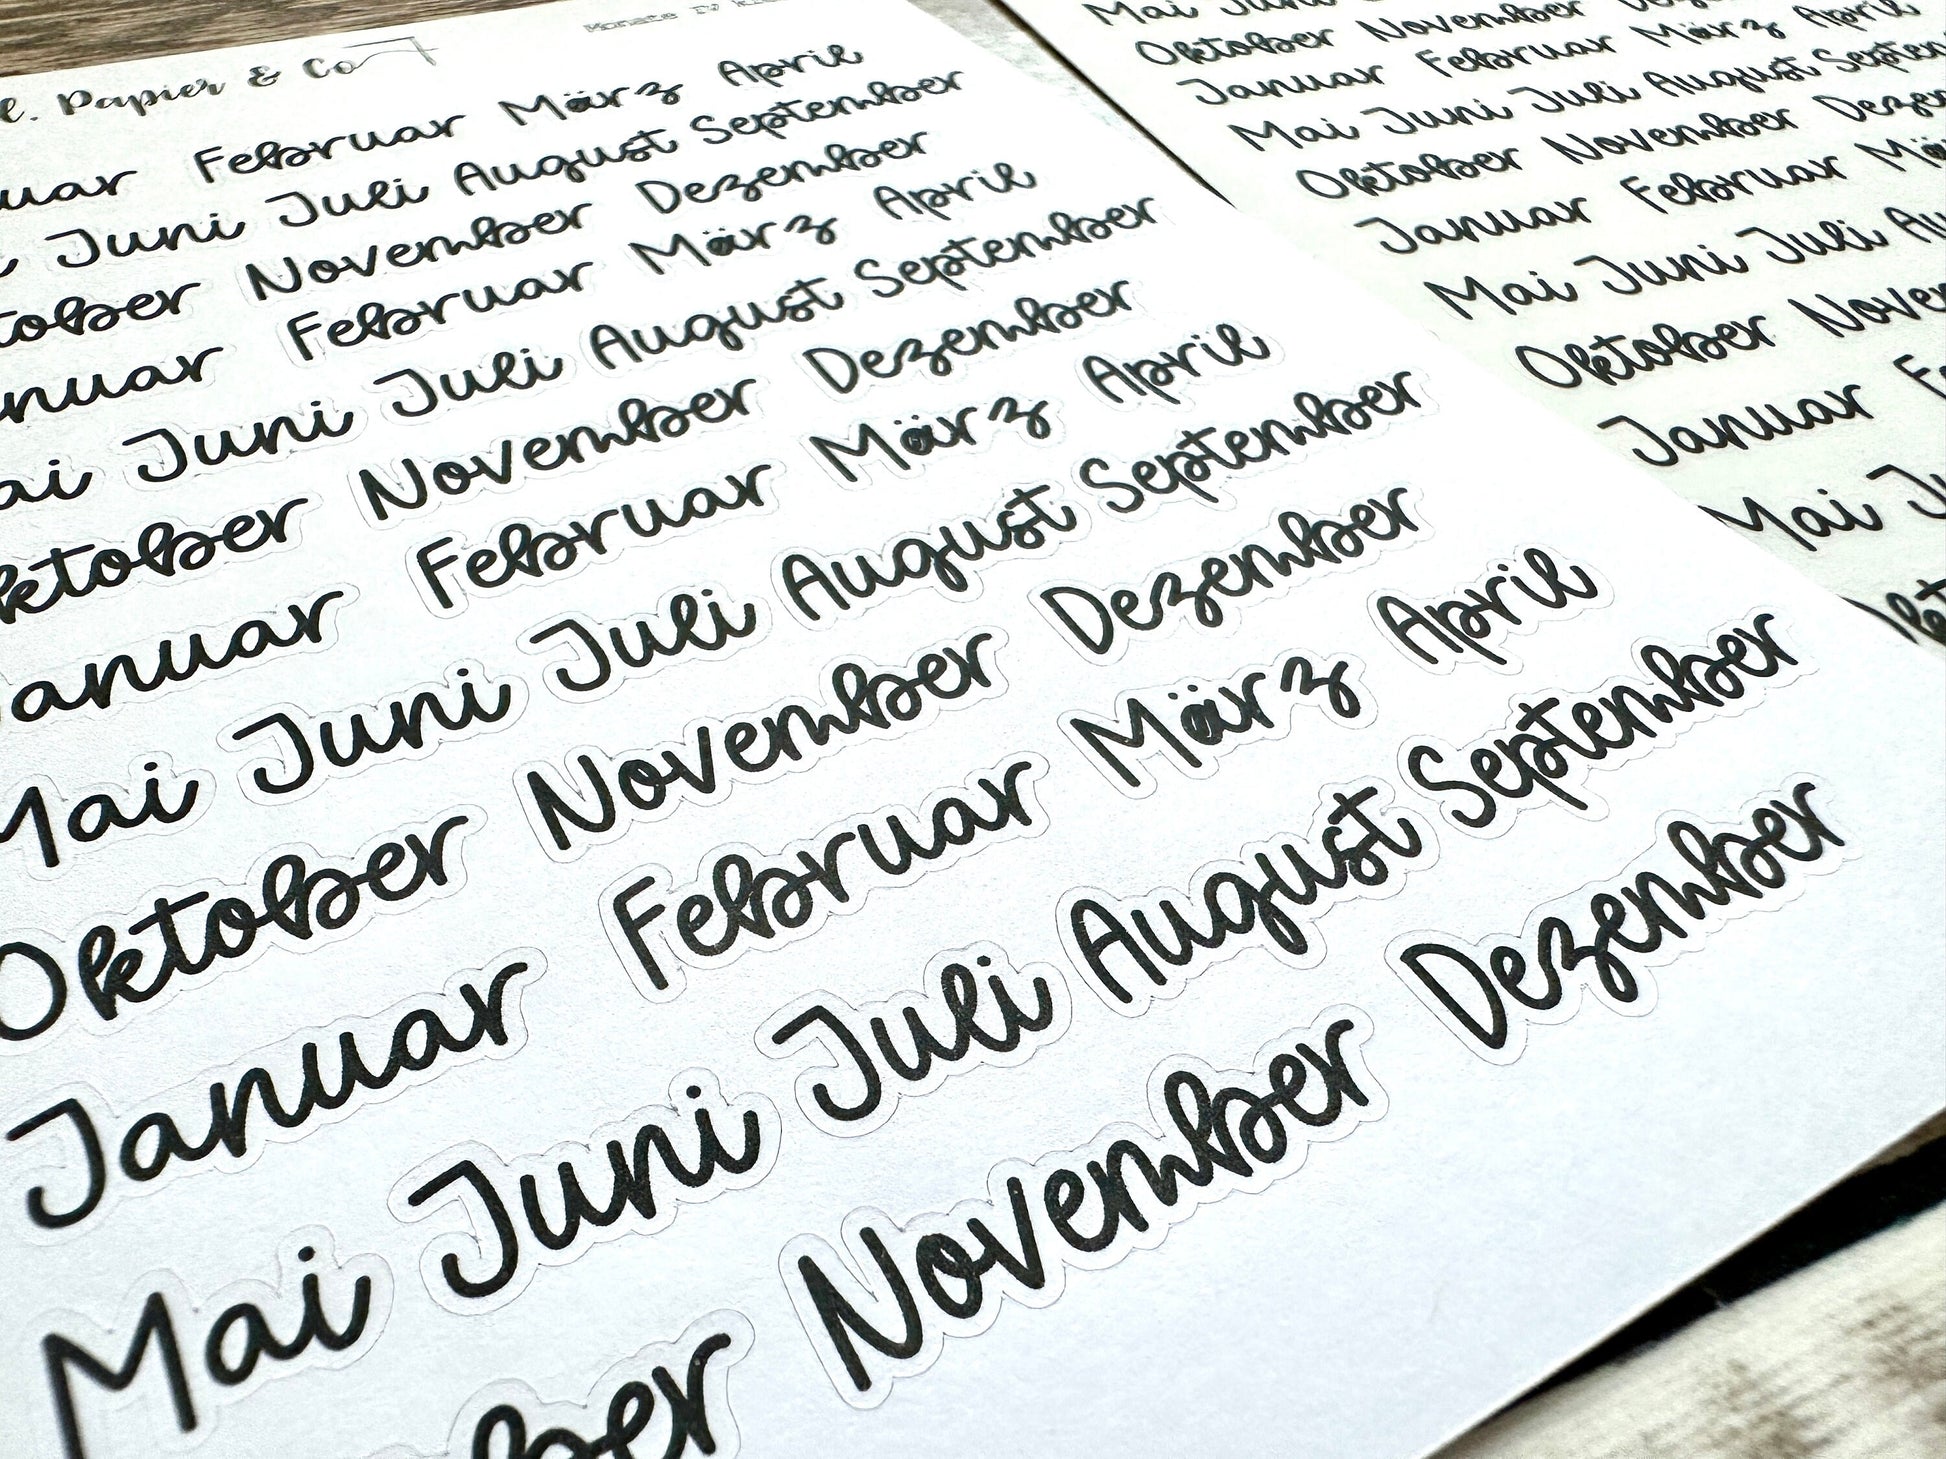 Papier & Co
Monate IV
Februar März April
Juni Juli August September
November Dezember
Februar März April
Juni Juli August September
Oktober November Dezember
Januar Februar März April
Mai Juni Juli August September
Oktober November Dezember
Januar Februar März April
Mai Juni Juli August September
November Dezember
Mai Juni
Oktober November
Januar Februar März April
Mai Juni Juli August Septem
Oktober November Dezem
Januar Februar
Mai Juni Juli
Oktober
Januar
Mai